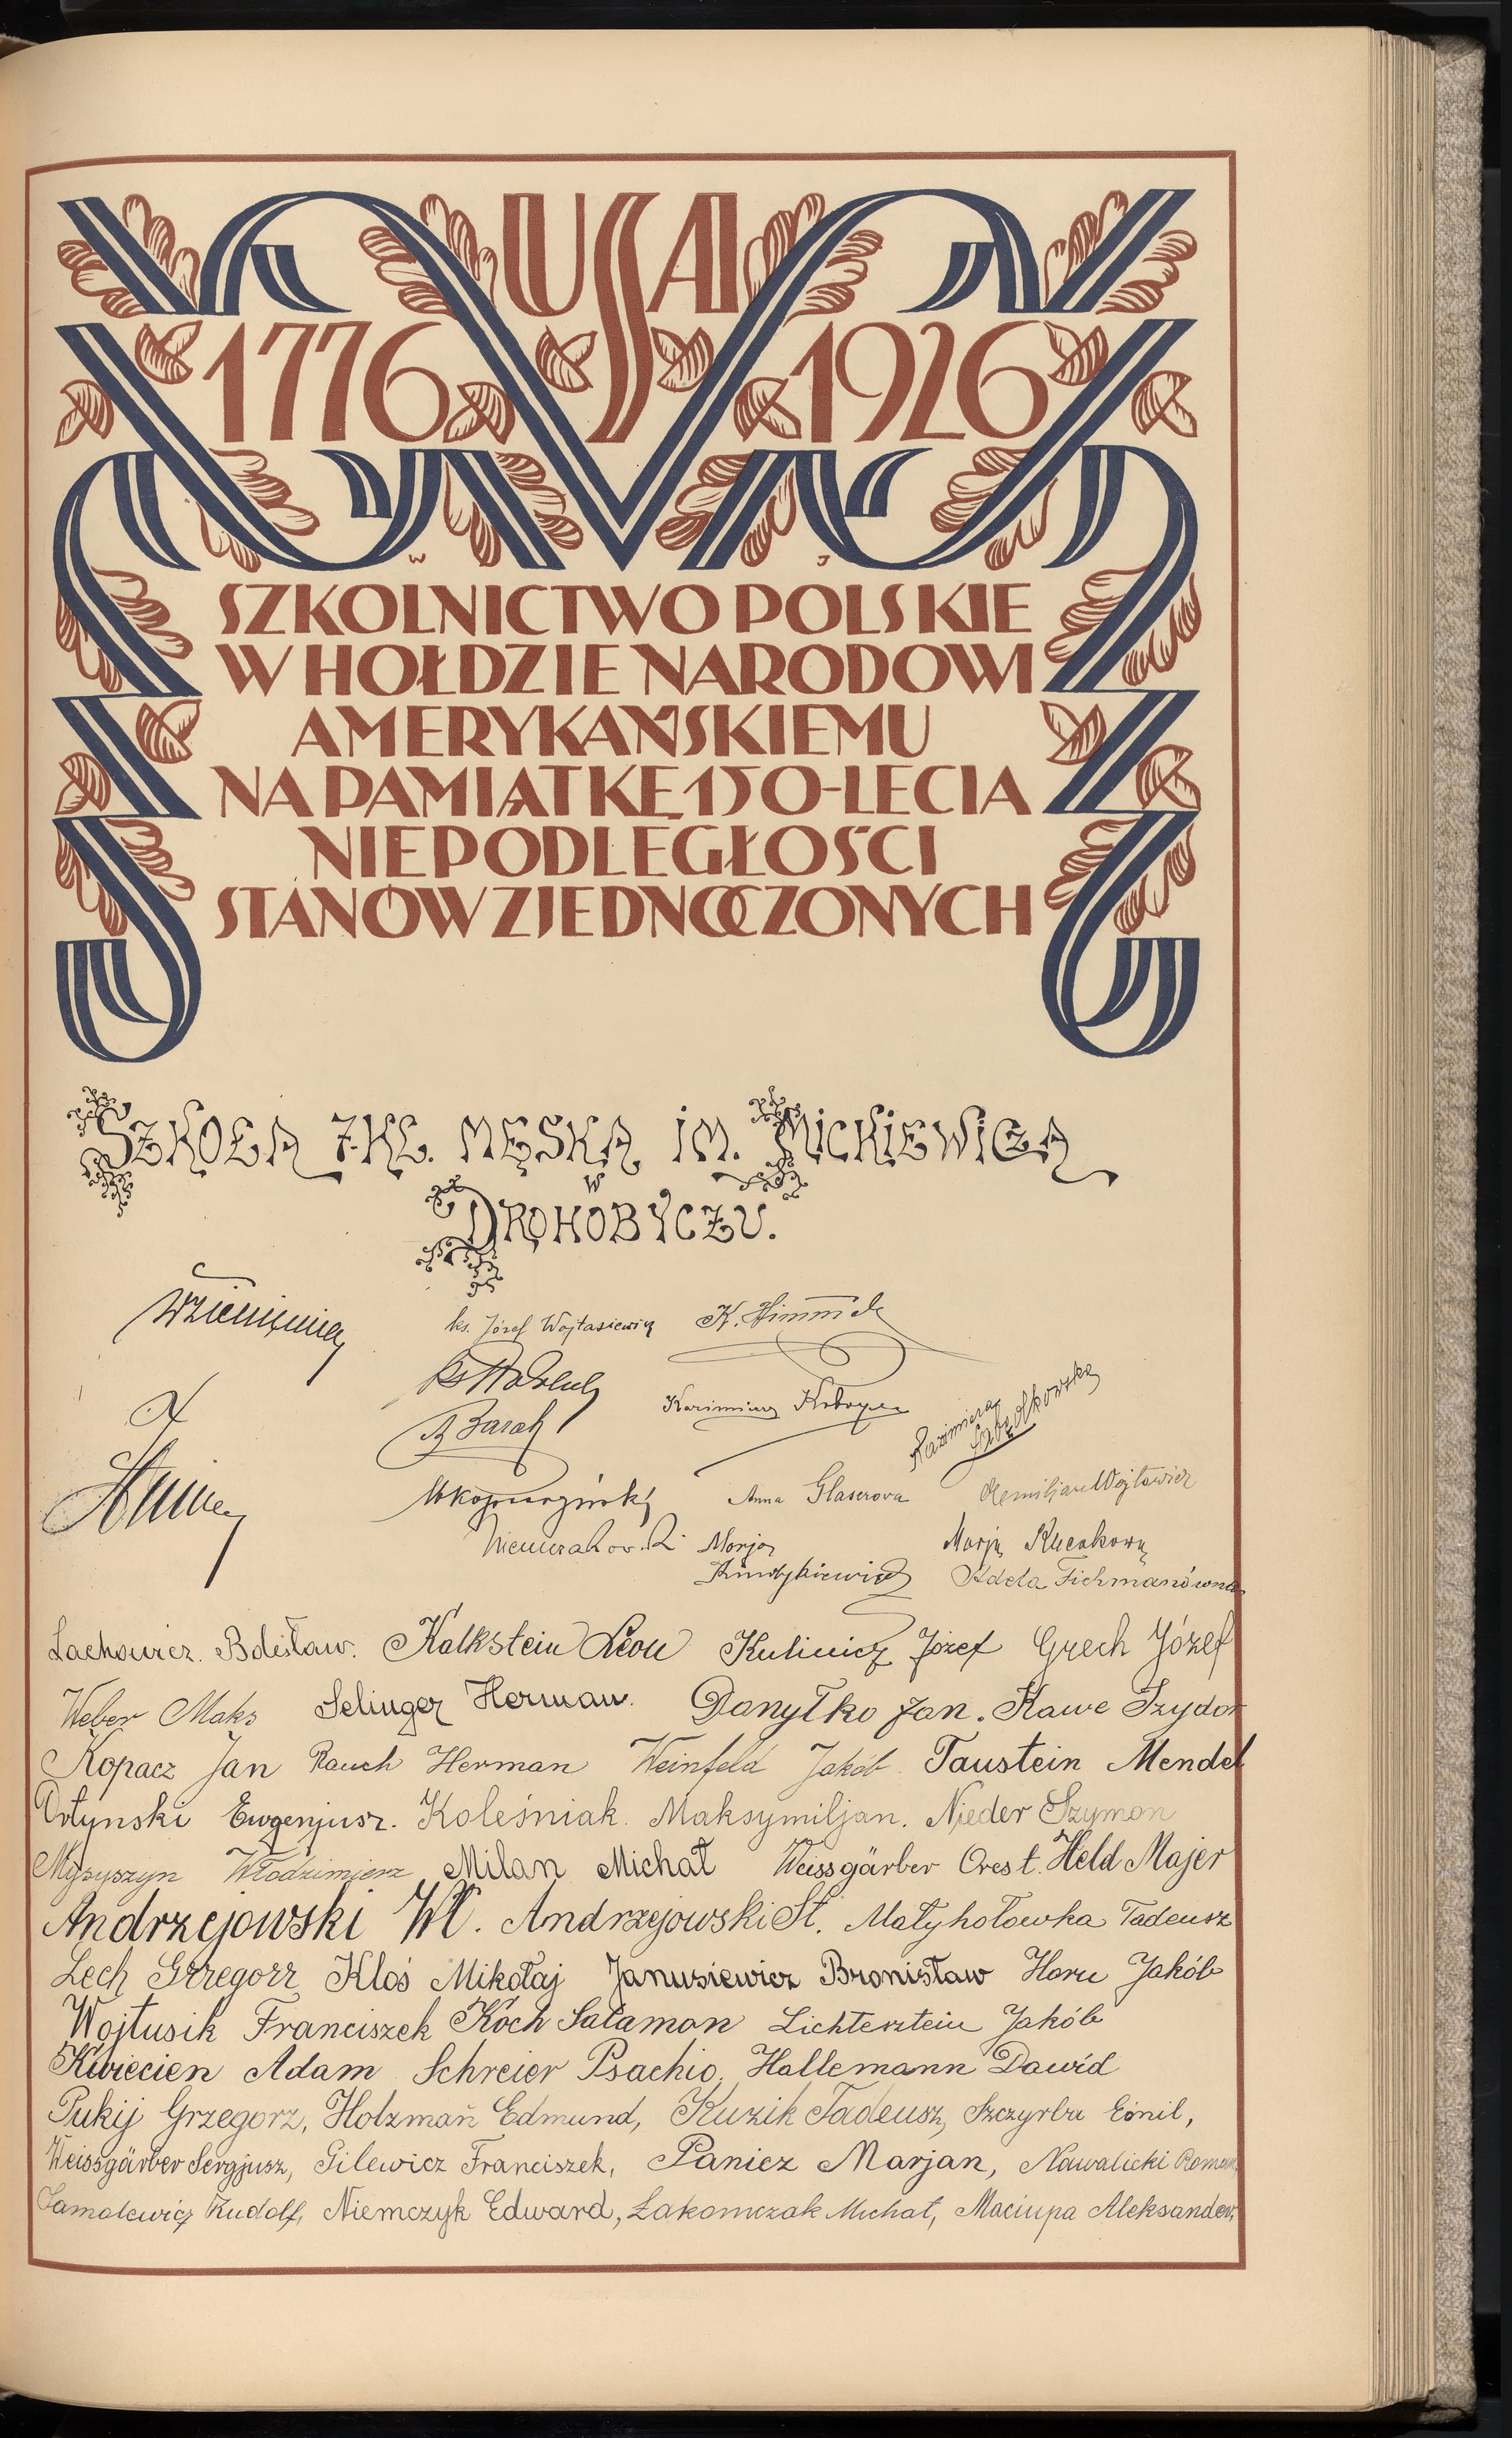 USA
1776 1926
W J
SZKOLNICTWO POLSKIE
W HOŁDZIE NARODOWI
AMERYKAŃSKIEMU
NA PAMIĄTKĘ 150-LECIA
NIEPODLEGŁOŚCI
STANÓW ZJEDNOCZONYCH
SZKOŁA 7-KL. MĘSKA IM. MICKIEWICZA
W
DROHOBYCZU.
ks. Józef Wojtasiewicz K. Himmel
B Barak Kazimierz
Kazimiera
Anna Glaserowa Aemiljan Wojtowicz
Marja Marja
Adela Fichmanówna
Lachowicz. Bolesław. Kalkstein Leon Kulinicz Józef Grech Józef
Weber Maks Selinger Herman. Danyłko Jan. Kawe Izydor
Kopacz Jan Rauch Herman Weinfeld Jakób. Taustein Mendel
Ortynski Ewgenjusz. Koleśniak. Maksymiljan. Nieder Szymon
Mysyszyn Włodzimierz Milan Michał Weissgärber Orest. Held Majer
Andrzejowski Wł. Andrzejowski St. Matyhołowka Tadeusz
Lech Grzegorz Kłoś Mikołaj Janusiewicz Bronisław Horn Jakób
Wojtusik Franciszek Koch Salamon Lichterstein Jakób
Kwiecien Adam Schreier Psachio. Hallemann Dawid
Pukij Grzegorz, Holzmann Edmund, Kuzik Tadeusz, Szczyrba Emil,
Weissgärber Sergjusz, Gilewicz Franciszek, Panicz Marjan, Nawalicki Roman,
Samolewicz Rudolf, Niemczyk Edward, Łakomczak Michał, Maciupa Aleksander,